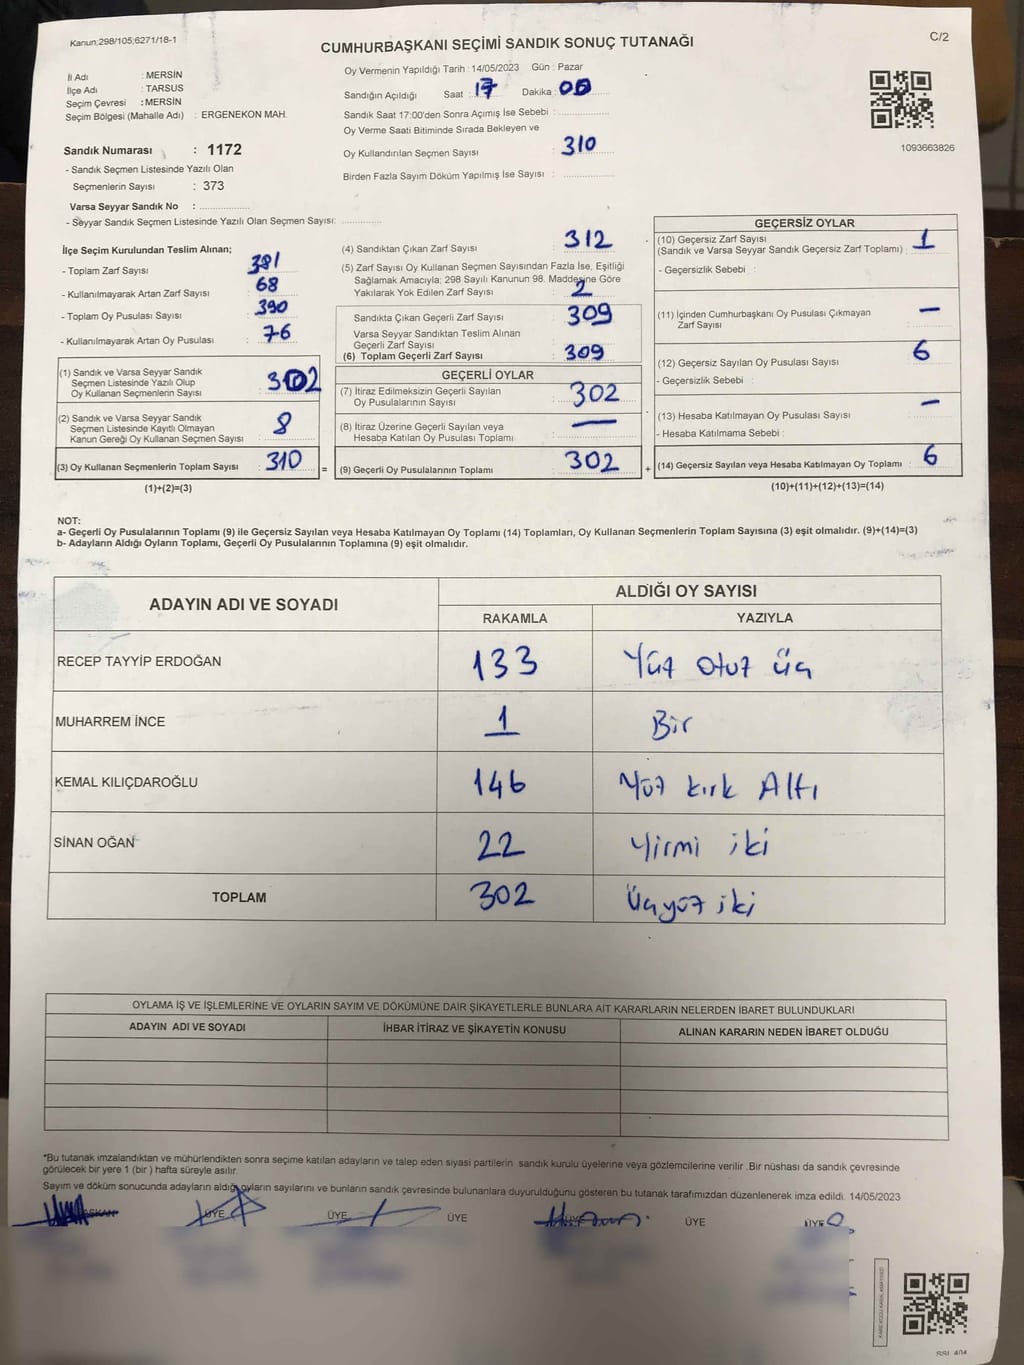 Kanun:298/105;6271/18-1
CUMHURBAŞKANI SEÇİMİ SANDIK SONUÇ TUTANAĞI
C/2
İl Adı : MERSİN
İlçe Adı : TARSUS
Seçim Çevresi : MERSİN
Seçim Bölgesi (Mahalle Adı) : ERGENEKON MAH.
Sandık Numarası : 1172
- Sandık Seçmen Listesinde Yazılı Olan
Seçmenlerin Sayısı : 373
Varsa Seyyar Sandık No :
- Seyyar Sandık Seçmen Listesinde Yazılı Olan Seçmen Sayısı:
Oy Vermenin Yapıldığı Tarih : 14/05/2023 Gün : Pazar
Sandığın Açıldığı Saat : 17 Dakika : 00
Sandık Saat 17:00'den Sonra Açımış İse Sebebi :
Oy Verme Saati Bitiminde Sırada Bekleyen ve
Oy Kullandırılan Seçmen Sayısı : 310
Birden Fazla Sayım Döküm Yapılmış İse Sayısı :
1093663826
İlçe Seçim Kurulundan Teslim Alınan;
- Toplam Zarf Sayısı : 381
- Kullanılmayarak Artan Zarf Sayısı : 68
- Toplam Oy Pusulası Sayısı : 390
- Kullanılmayarak Artan Oy Pusulası : 76
(1) Sandık ve Varsa Seyyar Sandık
Seçmen Listesinde Yazılı Olup
Oy Kullanan Seçmenlerin Sayısı : 302
(2) Sandık ve Varsa Seyyar Sandık
Seçmen Listesinde Kayıtlı Olmayan
Kanun Gereği Oy Kullanan Seçmen Sayısı : 8
(3) Oy Kullanan Seçmenlerin Toplam Sayısı : 310
(1)+(2)=(3)
(4) Sandıktan Çıkan Zarf Sayısı : 312
(5) Zarf Sayısı Oy Kullanan Seçmen Sayısından Fazla İse, Eşitliği
Sağlamak Amacıyla; 298 Sayılı Kanunun 98. Maddesine Göre
Yakılarak Yok Edilen Zarf Sayısı : 2
Sandıkta Çıkan Geçerli Zarf Sayısı : 309
Varsa Seyyar Sandıktan Teslim Alınan
Geçerli Zarf Sayısı :
(6) Toplam Geçerli Zarf Sayısı : 309
GEÇERLİ OYLAR
(7) İtiraz Edilmeksizin Geçerli Sayılan
Oy Pusulalarının Sayısı : 302
(8) İtiraz Üzerine Geçerli Sayılan veya
Hesaba Katılan Oy Pusulası Toplamı : —
= (9) Geçerli Oy Pusulalarının Toplamı : 302 +
GEÇERSİZ OYLAR
(10) Geçersiz Zarf Sayısı
(Sandık ve Varsa Seyyar Sandık Geçersiz Zarf Toplamı) : 1
- Geçersizlik Sebebi :
(11) İçinden Cumhurbaşkanı Oy Pusulası Çıkmayan
Zarf Sayısı : —
(12) Geçersiz Sayılan Oy Pusulası Sayısı : 6
- Geçersizlik Sebebi :
(13) Hesaba Katılmayan Oy Pusulası Sayısı : —
- Hesaba Katılmama Sebebi :
(14) Geçersiz Sayılan veya Hesaba Katılmayan Oy Toplamı : 6
(10)+(11)+(12)+(13)=(14)
NOT:
a- Geçerli Oy Pusulalarının Toplamı (9) ile Geçersiz Sayılan veya Hesaba Katılmayan Oy Toplamı (14) Toplamları, Oy Kullanan Seçmenlerin Toplam Sayısına (3) eşit olmalıdır. (9)+(14)=(3)
b- Adayların Aldığı Oyların Toplamı, Geçerli Oy Pusulalarının Toplamına (9) eşit olmalıdır.
ADAYIN ADI VE SOYADI ALDIĞI OY SAYISI
RAKAMLA YAZIYLA
RECEP TAYYİP ERDOĞAN 133 Yüz otuz üç
MUHARREM İNCE 1 Bir
KEMAL KILIÇDAROĞLU 146 Yüz kırk Altı
SİNAN OĞAN 22 Yirmi iki
TOPLAM 302 Üçyüz iki
OYLAMA İŞ VE İŞLEMLERİNE VE OYLARIN SAYIM VE DÖKÜMÜNE DAİR ŞİKAYETLERLE BUNLARA AİT KARARLARIN NELERDEN İBARET BULUNDUKLARI
ADAYIN ADI VE SOYADI İHBAR İTİRAZ VE ŞİKAYETİN KONUSU ALINAN KARARIN NEDEN İBARET OLDUĞU
*Bu tutanak imzalandıktan ve mühürlendikten sonra seçime katılan adayların ve talep eden siyasi partilerin sandık kurulu üyelerine veya gözlemcilerine verilir .Bir nüshası da sandık çevresinde
görülecek bir yere 1 (bir ) hafta süreyle asılır.
Sayım ve döküm sonucunda adayların aldığı oyların sayılarını ve bunların sandık çevresinde bulunanlara duyurulduğunu gösteren bu tutanak tarafımızdan düzenlenerek imza edildi. 14/05/2023
BAŞKAN ÜYE ÜYE ÜYE ÜYE ÜYE ÜYE